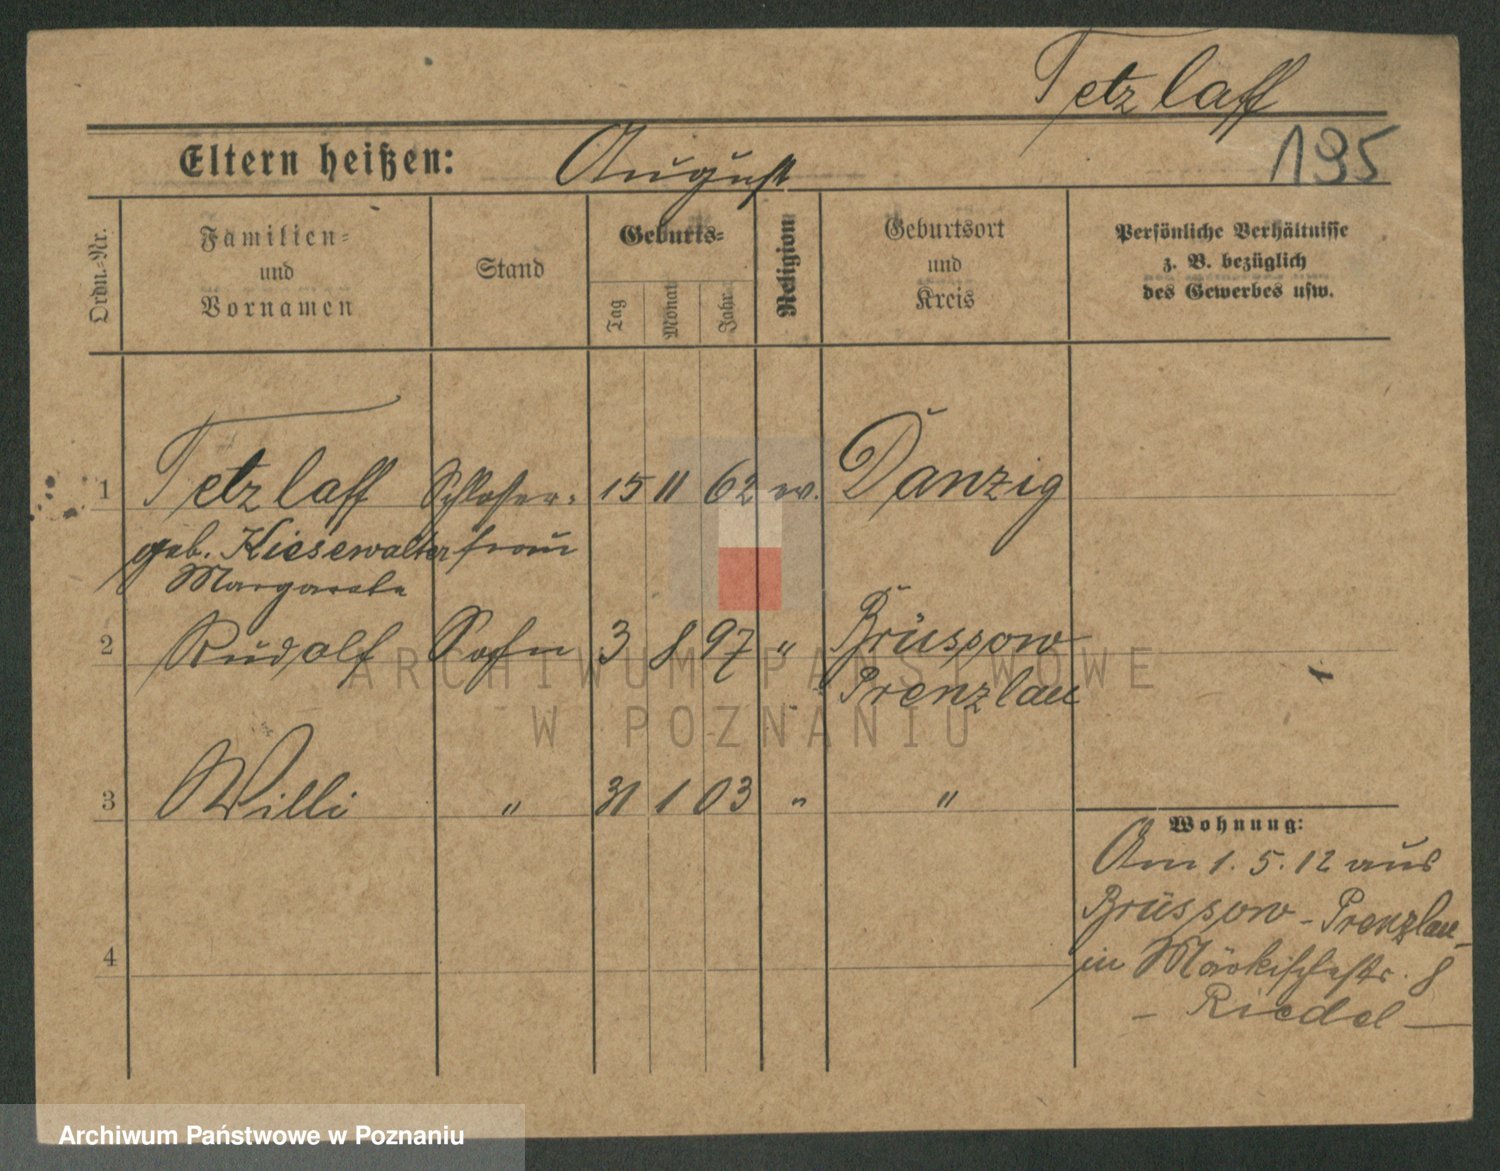 Tetzlaff
195
Eltern heißen: August
Ordn.-Nr.
Familien- und Vornamen
Stand
Geburts-
Tag
Monat
Jahr
Religion
Geburtsort und Kreis
Persönliche Verhältnisse
z. B. bezüglich
des Gewerbes usw.
1 Tetzlaff Schlosser- 15 11 62 ev. Danzig
geb. Kiesewalter frau
Margarete
2 Rudolf Sohn 3 8 97 " Brüssow
Prenzlau
3 Willi " 31 1 03 " "
4
Wohnung:
Am 1. 5. 12 aus
Brüssow - Prenzlau
in Märkischestr. 8
- Riedel -
ARCHIWUM PAŃSTWOWE
W POZNANIU
Archiwum Państwowe w Poznaniu